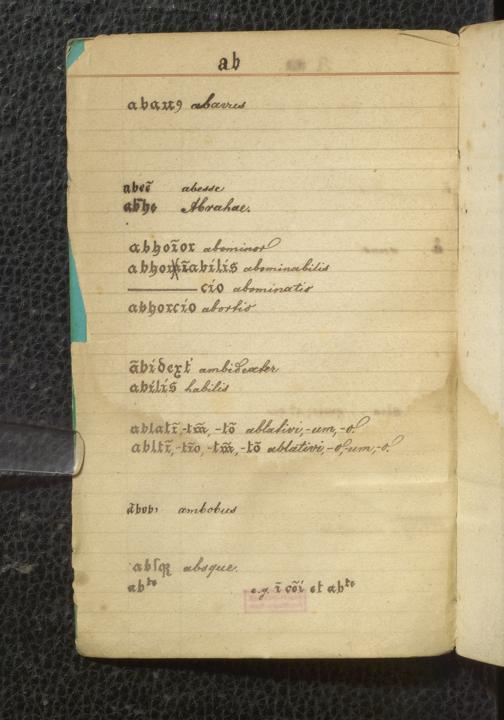 ab
abaux9 abavus
abeē abesse
abh̄e Abrahae.
abhoīor abominor
abhoīabilis abominabilis
——— cio abominatio
abhorcio abortio
ābidext' ambidexter
abilis habilis
ablatī, -tm̄, -tō ablativi, -um, -o.
abltī, -tīo, -tm̄, -tō ablativi, -o, -um, -o.
ambobus
absq absque.
ab^te e.g. ī cōi et ab^te